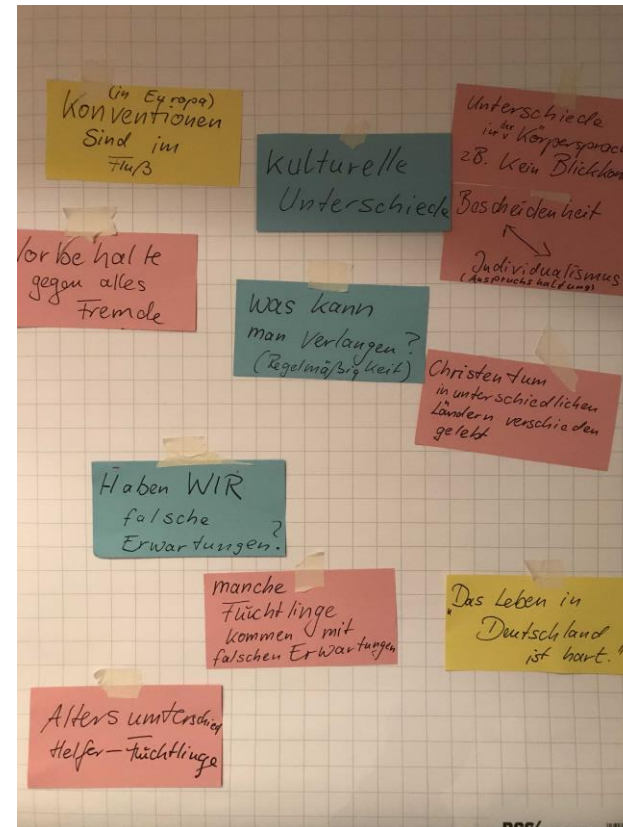 (in Europa)
Konventionen
Sind im
Fluß
Kulturelle
Unterschiede
Unterschiede
in der Körpersprach
zB. Kein Blickkon
Bescheidenheit
Individualismus
(Anspruchshaltung)
Vorbehalte
gegen alles
Fremde
Was kann
man verlangen?
(Regelmäßigkeit)
Christentum
in unterschiedlichen
Ländern verschieden
gelebt
Haben WIR
falsche
Erwartungen?
manche
Flüchtlinge
kommen mit
falschen Erwartungen
"Das Leben in
Deutschland
ist hart."
Altersumterschied
Helfer-Flüchtlinge